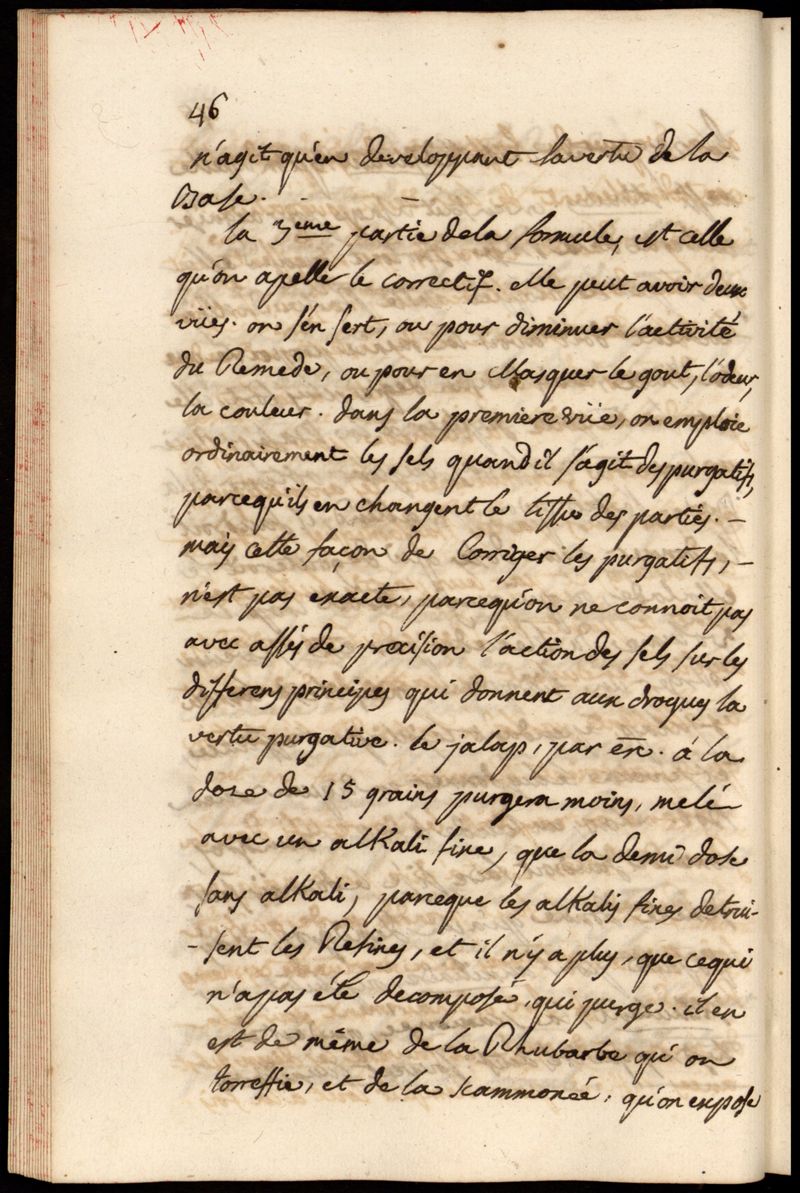 46
n'agit qu'en developpant la vertu de la
Base. -
la 3eme partie de la formule, est celle
qu'on apelle le correctif. elle peut avoir deux
vües. on s'en sert, ou pour diminuer l'activité
du Remede, ou pour en Masquer le gout, l'odeur,
la couleur. dans la premiere vüe, on emploie
ordinairement les sels quand il s'agit des purgatifs,
parcequ'ils en changent le tissu des parties. -
mais cette façon de Corriger les purgatifs, -
n'est pas exacte, parcequ'on ne connoit pas
avec assés de precision l'action des sels sur les
differens principes qui donnent aux drogues la
vertu purgative. le jalap, par ex. à la
dose de 15 grains purgera moins, melé
avec un alKali fixe, que la demi dose
sans alKali, parceque les alKalis fixes detrui-
-sent les Resines, et il n'y a plus, que ce qui
n'a pas été decomposé, qui purge. il en
est de même de la Rhubarbe qu'on
torreffie, et de la scammonée, qu'on expose